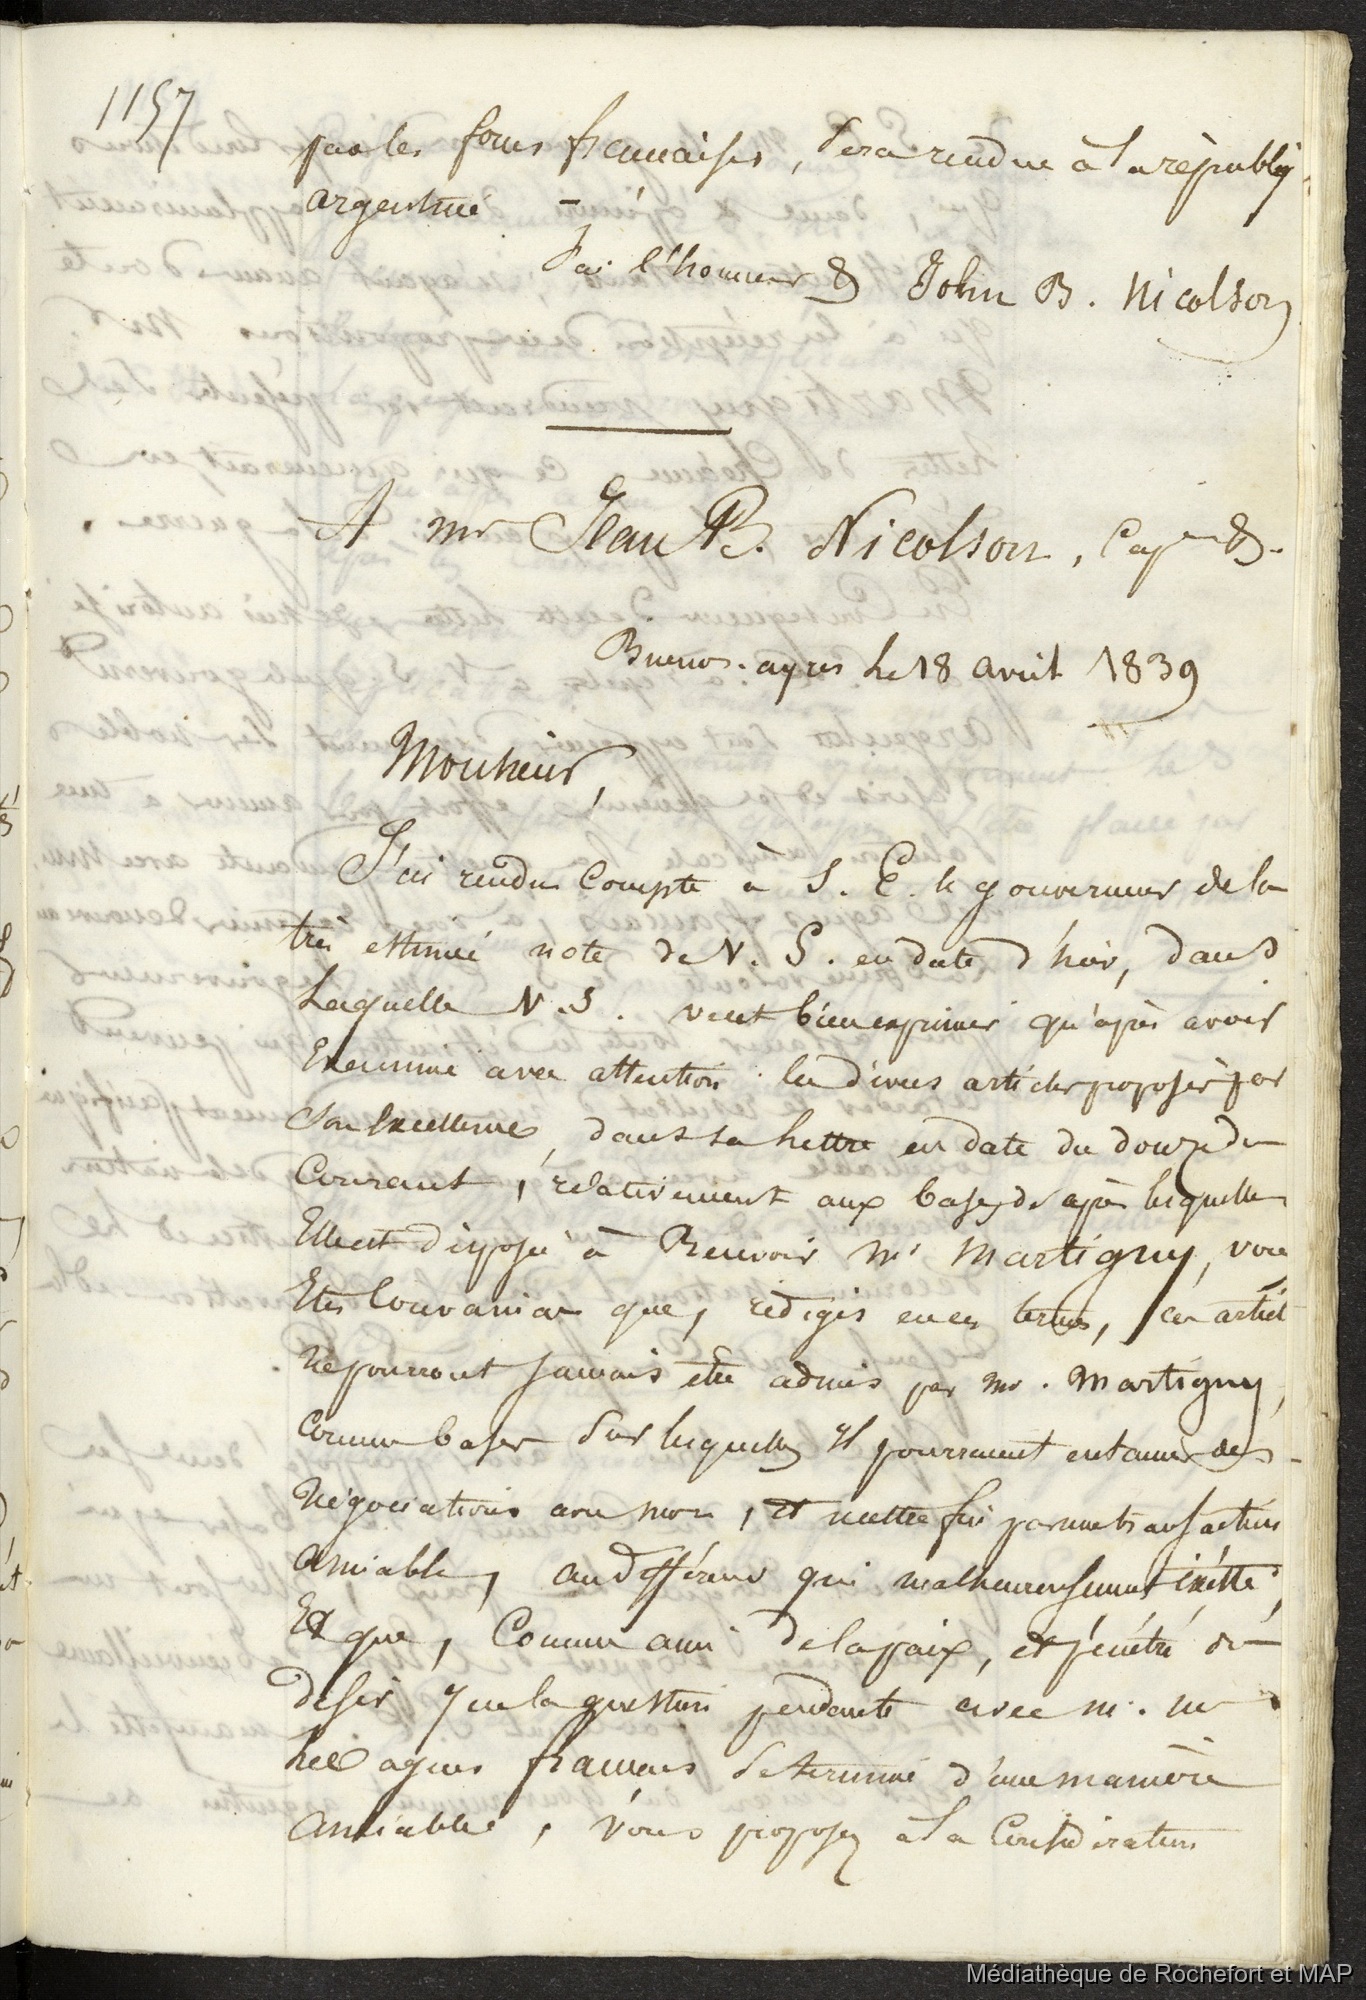 1157
par les forces françaises, sera rendue à la républiq.
argentine —
J'ai l'honneur & John B. Nicolson
A mr Jean B. Nicolson, Cap &.
Buenos-ayres le 18 avril 1839
Monsieur,
J'ai rendu Compte à S. E. le gouverneur de la
très estimée note de V. S. en date d'hier, dans
Laquelle V. S. veut bien exprimer qu'après avoir
Examiné avec attention les divers articles proposés par
Son Excellence, dans sa Lettre en date du douze du
Courant, relativement aux bases d'après lesquelles
Elle est disposée à Recevoir Mr Martigny, vous
Etes Convaincu que, rédigés en ces termes, ces articl
Ne pourront jamais être admis par mr. Martigny,
Comme bases sur lesquelles Il pourraient entamer des
Négociations avec moi, et mettre fin par une transaction
amiable, au différend qui malheureusement existe;
Et que, Comme ami de la paix, et pénétré du
desir que la question pendante avec m. m
les agens français se termine d'une manière
amiable, vous proposez à la Considération
Médiathèque de Rochefort et MAP